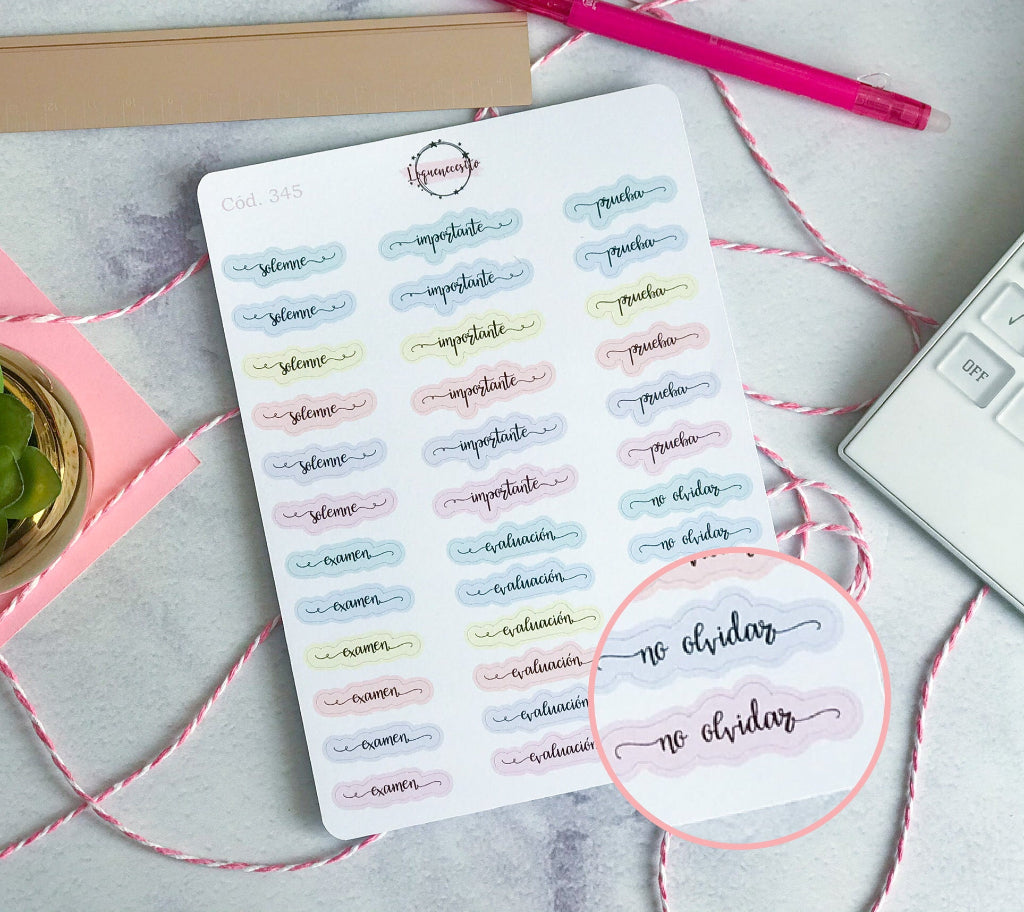 Cód. 345
Loquenecesito
solemne
solemne
solemne
solemne
solemne
solemne
examen
examen
examen
examen
examen
examen
importante
importante
importante
importante
importante
importante
evaluación
evaluación
evaluación
evaluación
evaluación
evaluación
prueba
prueba
prueba
prueba
prueba
prueba
no olvidar
no olvidar
no olvidar
no olvidar
OFF